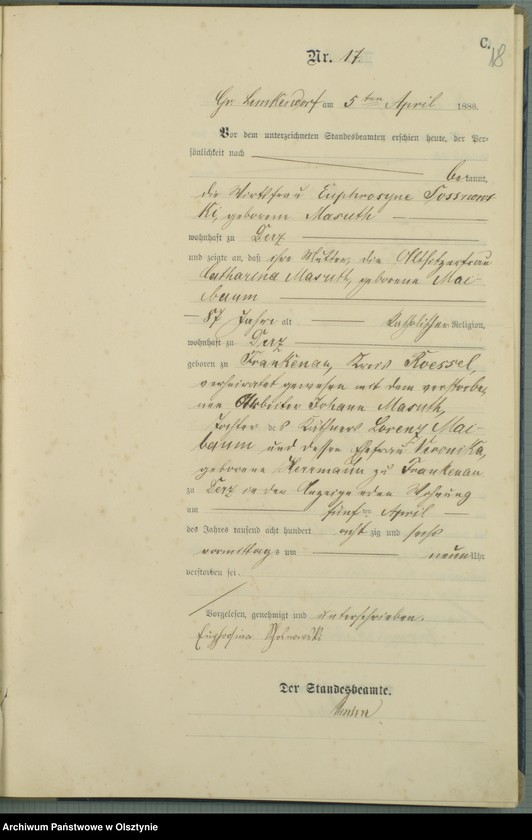 C.
18
Nr. 17.
Gr. Lemkendorf am 5ten April 1886.
Vor dem unterzeichneten Standesbeamten erschien heute, der Per-
sönlichkeit nach
bekannt,
die Wirthsfrau Euphrosyne
geborene Masuth
wohnhaft zu Derz
und zeigte an, daß ihre Mutter, die Altsitzerfrau
Catharina Masuth, geborene Mai-
baum
87 Jahre alt katholischer Religion,
wohnhaft zu Derz
geboren zu Frankenau, Kreis Roessel,
verheirathet gewesen mit dem verstorbe-
nen Arbeiter Johann Masuth,
Tochter des Käthners Lorenz Mai-
baum und dessen Ehefrau Veronika,
geborene Herrmann zu Frankenau
zu Derz in der Wohnung
am fünften April
des Jahres tausend acht hundert achtzig und sechs
vormittags um neun Uhr
verstorben sei.
Vorgelesen, genehmigt und unterschrieben.
Der Standesbeamte.
Archiwum Państwowe w Olsztynie